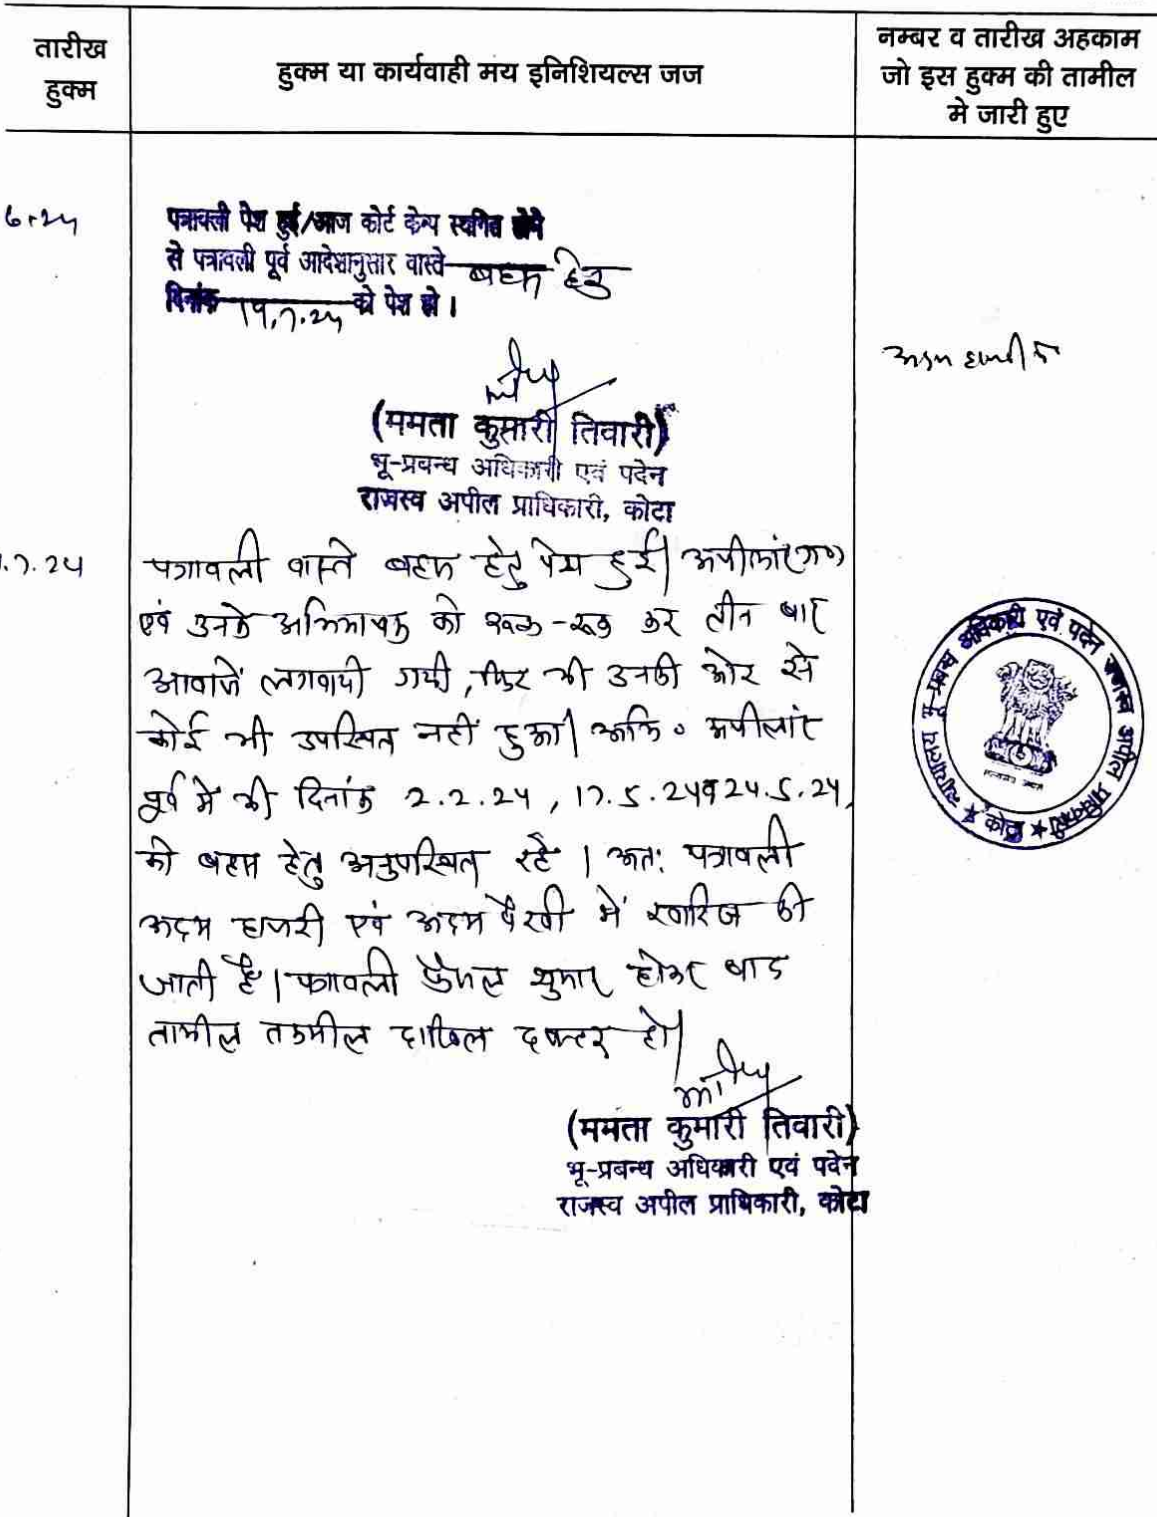 तारीख
हुक्म
हुक्म या कार्यवाही मय इनिशियल्स जज
नम्बर व तारीख अहकाम
जो इस हुक्म की तामील
मे जारी हुए
पत्रावली पेश हुई/आज कोर्ट केम्प स्थगित होने
से पत्रावली पूर्व आदेशानुसार वास्ते बहस हेतु
दिनांक 19.7.24 को पेश हो।
(ममता कुमारी तिवारी)
भू-प्रबन्ध अधिकारी एवं पदेन
राजस्व अपील प्राधिकारी, कोटा
अदम हाजरी
.7.24
पत्रावली वास्ते बहस हेतु पेश हुई। अपीलांट
एवं उनके अभिभाषक को रूक-रूक कर तीन बार
आवाजें लगवायी गयी, फिर भी उनकी ओर से
कोई भी उपस्थित नहीं हुआ। अभि० अपीलांट
पूर्व में भी दिनांक 2.2.24, 17.5.24 व 24.5.24
को बहस हेतु अनुपस्थित रहे। अतः पत्रावली
अदम हाजरी एवं अदम पैरवी में खारिज की
जाती है। पत्रावली फैसल शुमार होकर बाद
तामील तकमील दाखिल दफ्तर हो।
(ममता कुमारी तिवारी)
भू-प्रबन्ध अधिकारी एवं पदेन
राजस्व अपील प्राधिकारी, कोटा
न्यायालय भू-प्रबन्ध अधिकारी एवं पदेन राजस्व अपील प्राधिकारी
★ कोटा ★